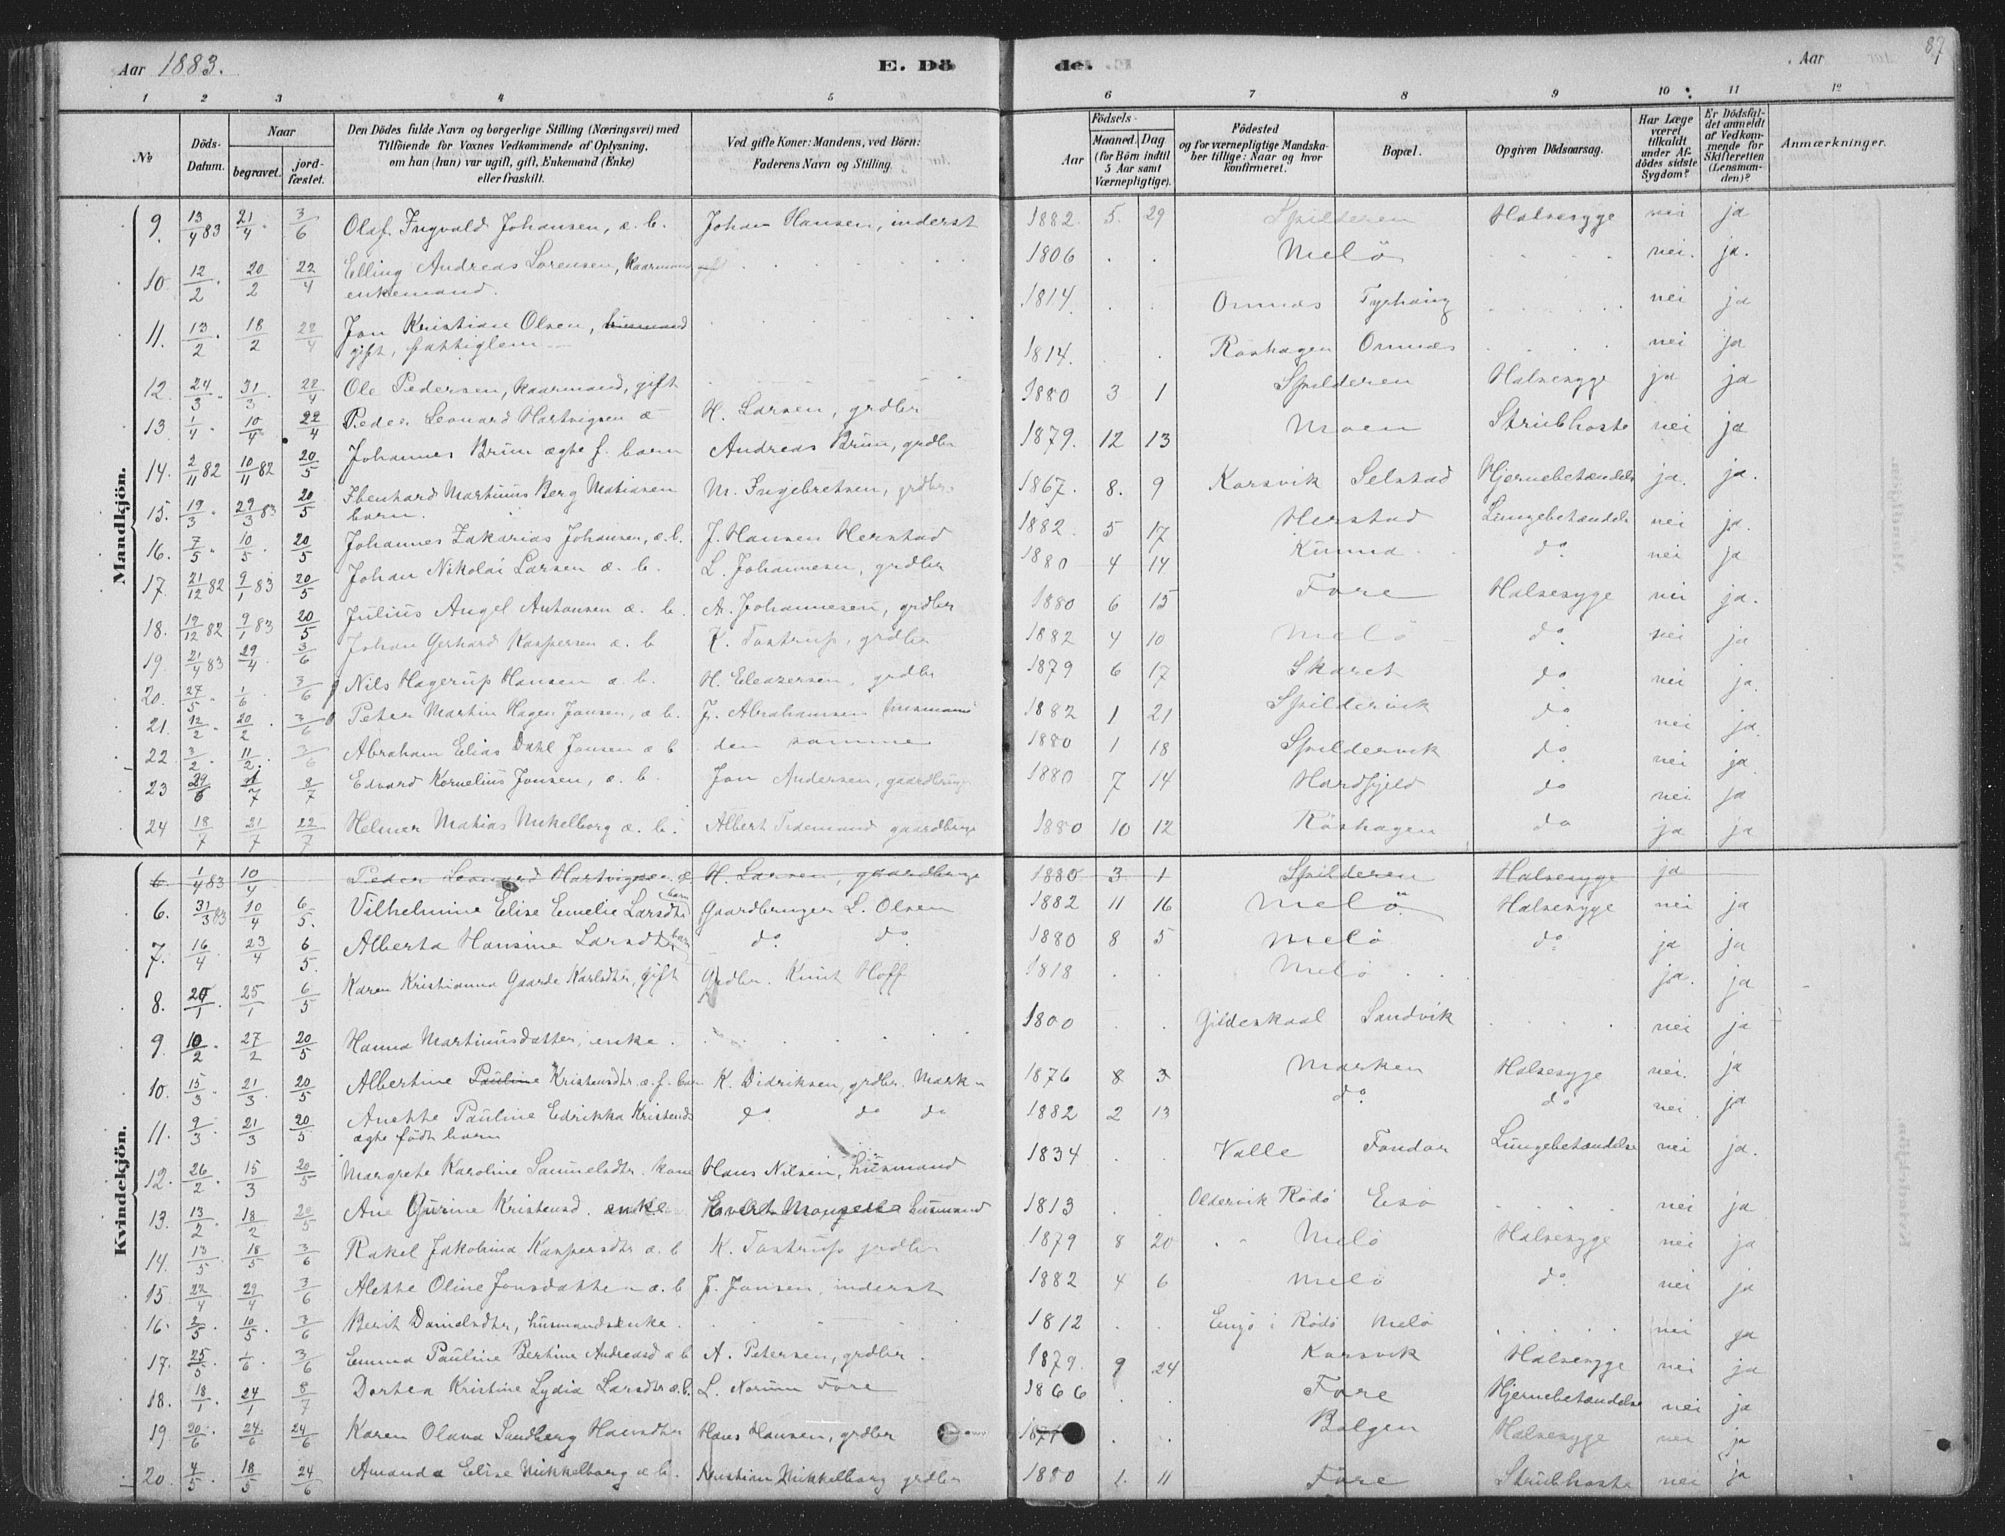 Aar 1883. E. Dö de. Aar 87
1 2 3 4 5 6 7 8 9 10 11 12
No Döds-Datum. Naar begravet. jord-fæstet. Den Dödes fulde Navn og borgerlige Stilling (Næringsvei) med Tilföiende for Voxnes Vedkommende af Oplysning, om han (hun) var ugift, gift, Enkemand (Enke) eller fraskilt. Ved gifte Koner: Mandens, ved Börn: Faderens Navn og Stilling. Födsels- Aar Maaned. Dag (for Börn indtil 5 Aar samt Værnepligtige). Födested og for værnepligtige Mandskaber tillige: Naar og hvor konfirmeret. Bopæl. Opgiven Dödsaarsag. Har Læge været tilkaldt under Afdödes sidste Sygdom? Er Dödsfaldet anmeldt af Vedkommende for Skifteretten (Lensmanden)? Anmærkninger.
Mandkjön.
9. 13/4 83 21/4 3/6 Olaf Ingvald Johansen, æ. b. Johan Hansen, inderst 1882. 5. 29 Spilderen Halsesyge nei ja
10. 12/2 20/2 22/4 Elling Andreas Lorensen, kaarmand enkemand. 1806 Melö nei. ja.
11. 13/2 18/2 22/4 Jon Kristian Olsen, husmand gift, fattiglem 1814. Ornnes nei ja
12. 24/3 31/3 22/4 Ole Pedersen, kaarmand, gift 1814. Röshagen Ornnes nei ja
13. 1/4 10/4 22/4 Peder Leonard Hartvigsen æ H. Larsen, grdbr 1880 3 1 Spilderen Halsesyge ja ja
14. 2/11 82 10/11 82 20/5 Johannes Brun ægte f. barn Andreas Brun, grdbr 1879. 12 13 Moen Strubhoste nei ja
15. 19/3 29/3 83 20/5 Ebenhard Martinus Berg Matiasen barn. M. Ingebretsen, grdbr. 1867. 8. 9 Korsvik Selstad Hjernebetændels ja. ja.
16. 7/5 10/5 20/5 Johannes Zakarias Johansen, æ. b. J. Hansen Herstad 1882. 5 17 Herstad Lungebetændels nei ja.
17. 21/12 82 9/1 83 20/5 Johan Nikolai Larsen æ. b. L. Johannesen, grdbr 1880 4 14 Kunna do nei ja
18. 19/12 82 9/1 83 20/5 Julius Angel Antonsen æ. b. A. Johannesen, grdbr 1880 6 15 Fore Halsesyge nei ja.
19. 21/4 83 29/4 3/6 Johan Gerhard Kaspersen æ. b K. Tostrup, grdbr 1882 4 10 Melö do nei ja
20. 27/5 1/6 3/6 Nils Hagerup Hansen æ. b. H. Eleazersen, grdbr 1879 6 17 Skaret do nei ja.
21. 12/2 20/2 3/6 Peter Martin Hagen Jonsen, æ b. J. Abrahamsen husmand 1882 1 21 Spildervik do nei ja.
22 3/2 11/2 3/6 Abraham Elias Dahl Jonsen æ b den samme 1880 1 18 Spildervik do nei ja
23 29/6 1/7 8/7 Edvard Kornelius Jonsen, æ. b. Jon Andersen, gaardbruger 1880 7 14 Hardfjeld do nei ja
24 18/7 21/7 22/7 Helmer Matias Mikelborg æ. b. Albert Tidemand gaardbruge 1880 10 12 Röshagen do ja ja
Kvindekjön.
6 1/4 83 10/4 Peder Leonard Hartvigsen æ H. Larsen, gaardbruge 1880 3 1 Spilderen Halsesyge ja
6. 31/3 83 10/4 6/5. Vilhelmine Elise Emelie Larsdtr barn Gaardbruger L. Olsen 1882 11 16 Melö Halsesyge nei ja
7. 16/4 23/4 6/5. Alberta Hansine Larsdtr barn do do 1880 8 5 Melö do ja ja
8. 20/1 25/1 6/5 Karen Kristianna Gaarde Karlsdtr, gift Grdbr. Knut Hoff 1818 Melö ja. ja
9. 10/2 27/2 20/5 Hanna Martinusdatter, enke. 1800 Gildeskaal Sandvik nei ja
10. 15/3 21/3 20/5 Albertine Pauline Kristensdtr. æ. f. barn K. Didriksen, grdbr. Mark 1876 8 3 Marken Halsesyge nei. ja
11. 9/3 21/3 20/5 Anette Pauline Edrikka Kristensd ægte födt barn do do do 1882 2 13 do do nei. ja
12. 26/2 15/3 20/5 Margrete Karoline Samuelsdtr. kone Hans Nilsen, husmand 1834 Valle Fondar Lungebetændelse nei ja.
13. 13/2 18/2 20/5 Ane Gurine Kristensd. enke husmand 1813 Oldervik Rödö Esö nei ja
14. 13/5 18/5 3/6 Rakel Jakobina Kaspersdtr æ. b K. Tostrup grdbr 1879 8 20 Melö Halsesyge nei ja
15. 22/4 29/4 3/6 Alette Oline Jonsdatter æ. b J. Jonsen, inderst 1882 4 6 Melö do nei ja
16. 2/5 10/5. 3/6 Berit Danielsdtr, husmandsenke. 1812 i Rödö Melö nei ja
17. 25/5 1/6. 3/6 Emma Pauline Bertine Andreasd æ b A. Petersen, grdbr. 1879. 9 24 Korsvik Halsesyge nei ja
18. 18/1 24/1 8/7 Dortea Kristine Lydia Larsdtr æ. b. L. Norum Fore 1866 Fore Hjernebetændelse nei ja
19. 20/6 24/6 24/6 Karen Olava Sandberg Hansdtr Hans Hansen, grdbr 1871 Bolgen Halsesyge nei ja
20. 4/5 18/5 24/6 Amanda Elise Mikkelborg æ b. Kristian Mikkelborg grdbr 1880 1. 11 Fore Strubhoste nei ja